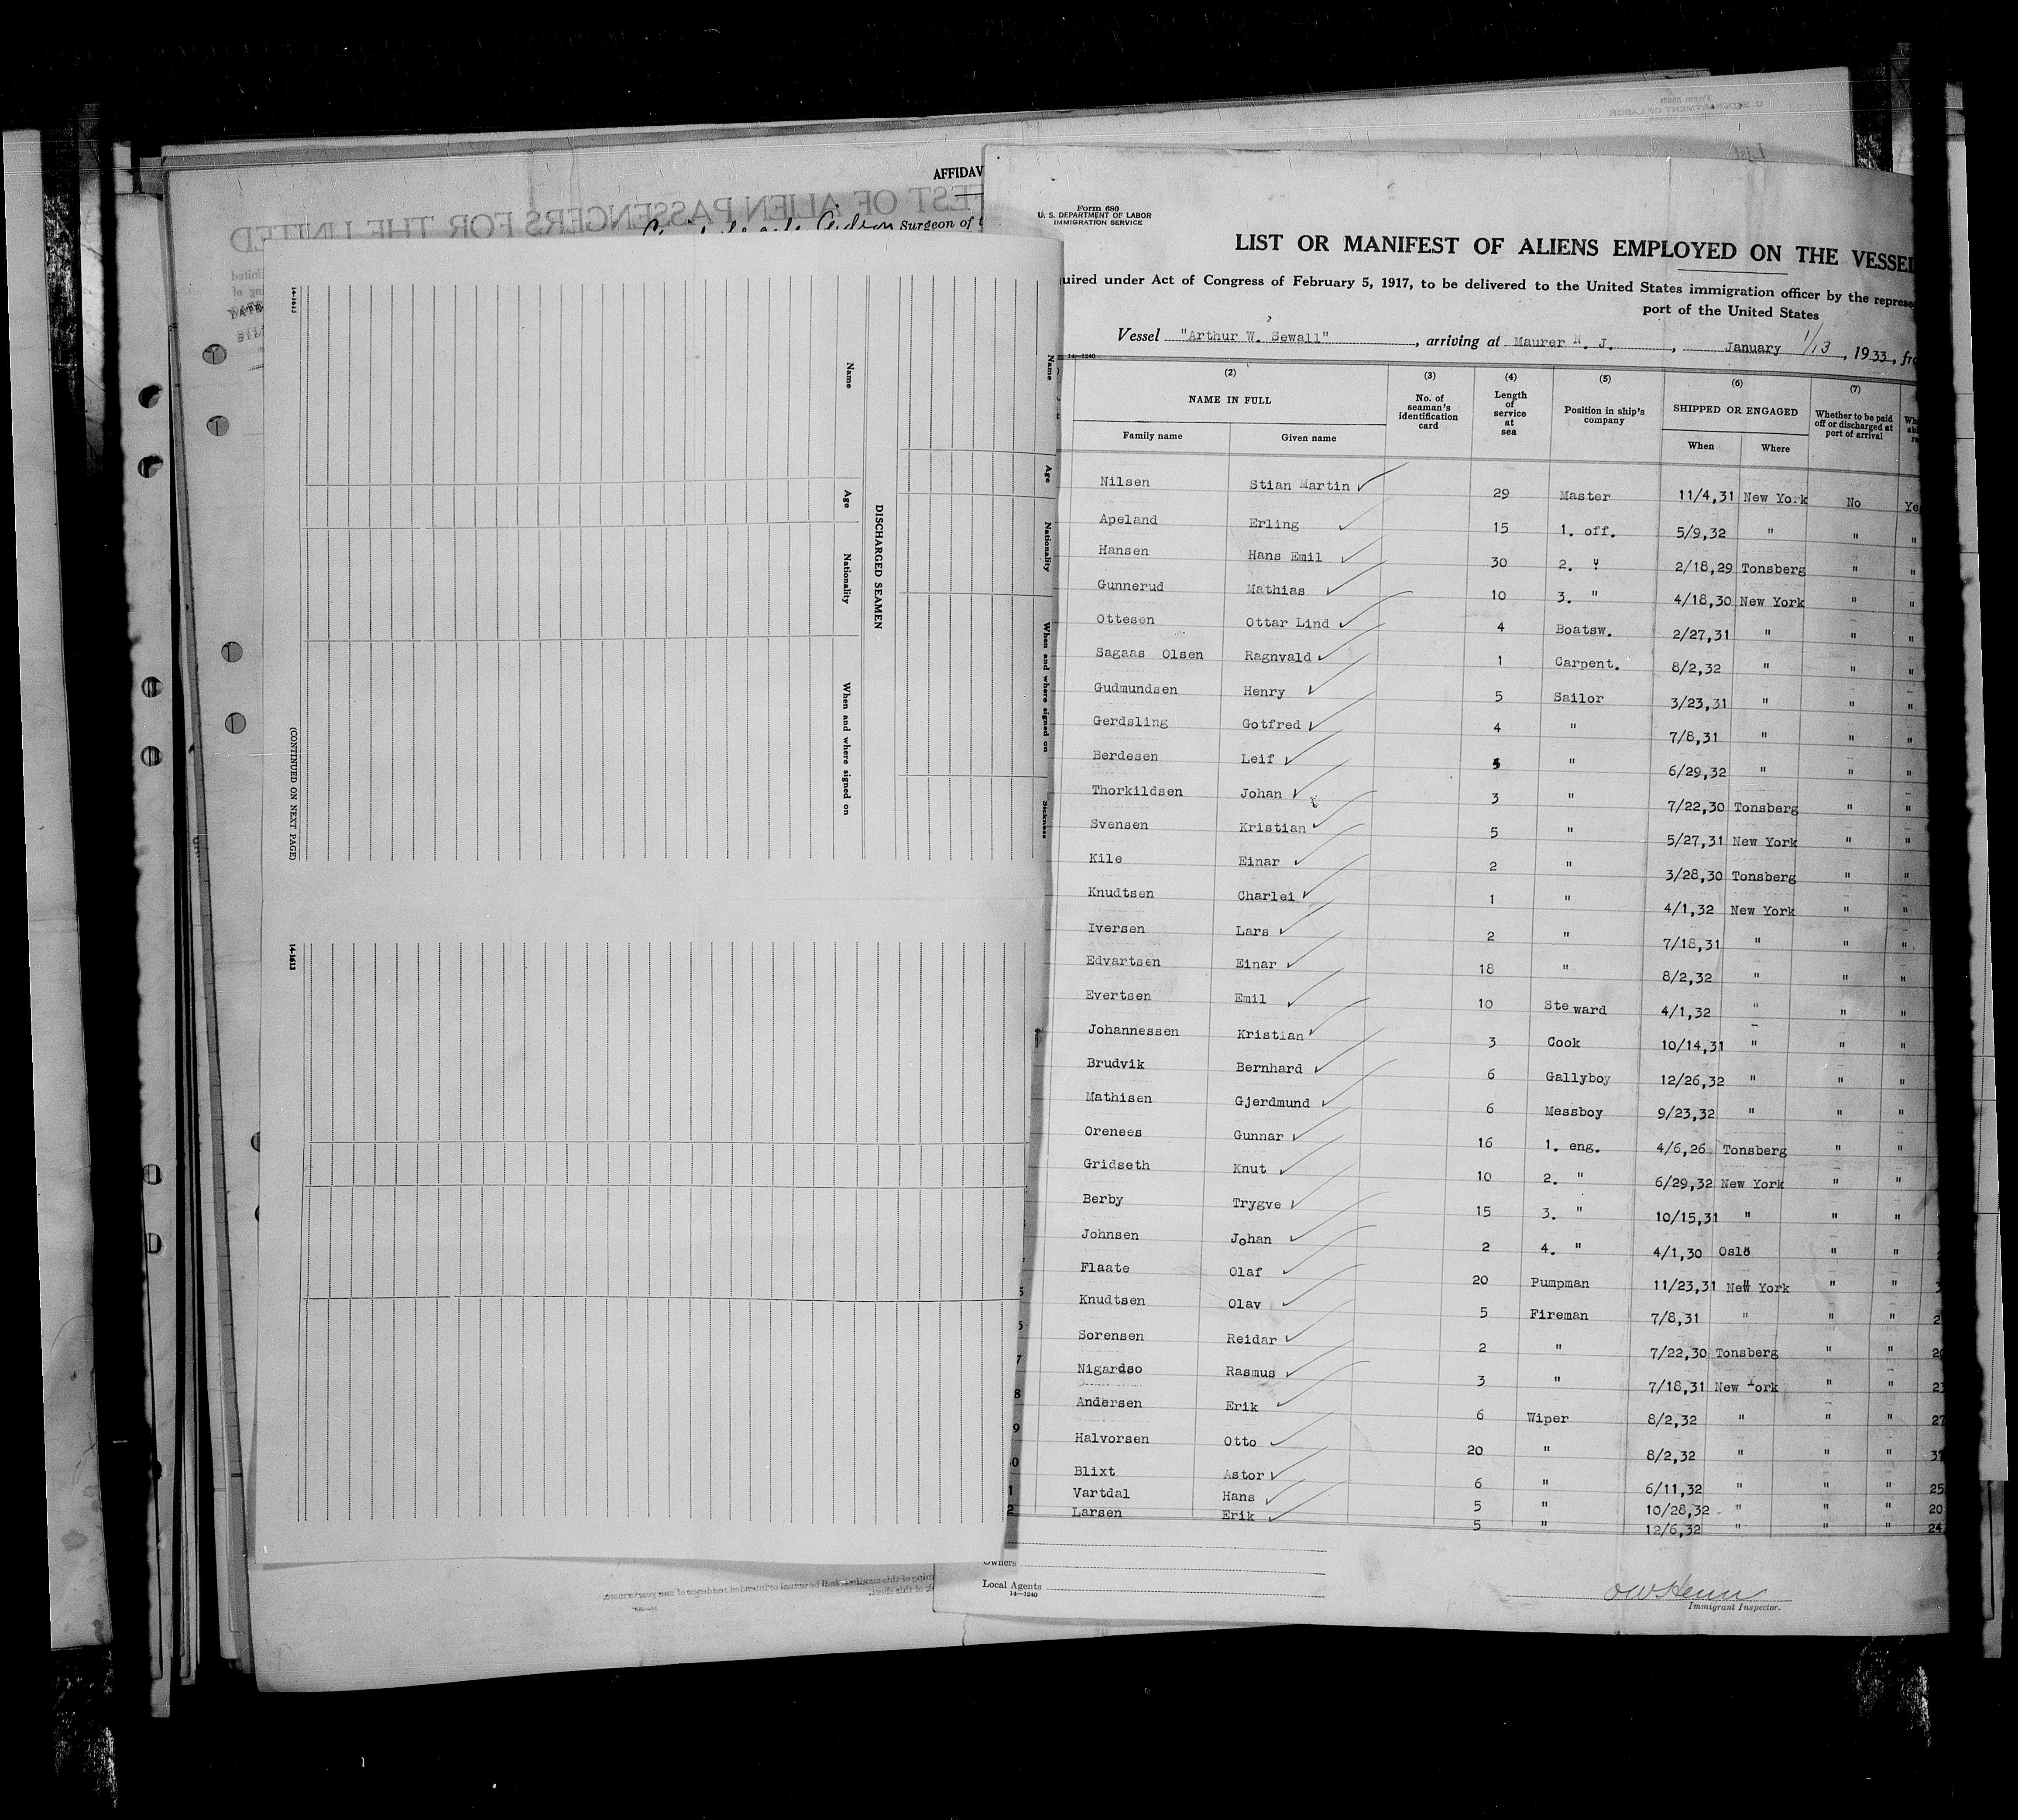 AFFIDAV
Surgeon of
14-1613
Name
Age
Nationality
When and where signed on
Sickness
DISCHARGED SEAMEN
Name
Age
Nationality
When and where signed on
(CONTINUED ON NEXT PAGE)
14-1613
Form 680
U. S. DEPARTMENT OF LABOR
IMMIGRATION SERVICE
LIST OR MANIFEST OF ALIENS EMPLOYED ON THE VESSEL
uired under Act of Congress of February 5, 1917, to be delivered to the United States immigration officer by the represe
port of the United States
Vessel "Arthur W. Sewall", arriving at Maurer N. J., January 1/13, 1933, fro
14-1240
(2) (3) (4) (5) (6) (7)
NAME IN FULL No. of seaman's identification card Length of service at sea Position in ship's company SHIPPED OR ENGAGED Whether to be paid off or discharged at port of arrival
Family name Given name When Where
Nilsen Stian Martin 29 Master 11/4,31 New York No Ye
Apeland Erling 15 1. off. 5/9,32 " " "
Hansen Hans Emil 30 2. " 2/18,29 Tonsberg " "
Gunnerud Mathias 10 3. " 4/18,30 New York " "
Ottesen Ottar Lind 4 Boatsw. 2/27,31 " " "
Sagaas Olsen Ragnvald 1 Carpent. 8/2,32 " " "
Gudmundsen Henry 5 Sailor 3/23,31 " " "
Gerdsling Gotfred 4 " 7/8,31 " " "
Berdesen Leif " 6/29,32 " " "
Thorkildsen Johan 3 " 7/22,30 Tonsberg " "
Svensen Kristian 5 " 5/27,31 New York " "
Kile Einar 2 " 3/28,30 Tonsberg " "
Knudtsen Charlei 1 " 4/1,32 New York " "
Iversen Lars 2 " 7/18,31 " " "
Edvartsen Einar 18 " 8/2,32 " " "
Evertsen Emil 10 Steward 4/1,32 " " "
Johannessen Kristian 3 Cook 10/14,31 " " "
Brudvik Bernhard 6 Gallyboy 12/26,32 " " "
Mathisen Gjerdmund 6 Messboy 9/23,32 " " "
Orenees Gunnar 16 1. eng. 4/6,26 Tonsberg " "
Gridseth Knut 10 2. " 6/29,32 New York " "
Berby Trygve 15 3. " 10/15,31 " " "
Johnsen Johan 2 4. " 4/1,30 Oslo " "
Flaate Olaf 20 Pumpman 11/23,31 New York " " 3
Knudtsen Olav 5 Fireman 7/8,31 " " " 2
Sorensen Reidar 2 " 7/22,30 Tonsberg " " 20
Nigardso Rasmus 3 " 7/18,31 New York " " 23
Andersen Erik 6 Wiper 8/2,32 " " " 27
Halvorsen Otto 20 " 8/2,32 " " "
Blixt Astor 6 " 6/11,32 " " " 25
Vartdal Hans 5 " 10/28,32 " " " 20
Larsen Erik 5 " 12/6,32 " " " 24
Owners
Local Agents
14-1240
Immigrant Inspector.